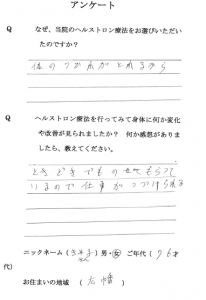 アンケート
Q なぜ、当院のヘルストロン療法をお選びいただい
たのですか?
体のつかれがとれるから
Q ヘルストロン療法を行ってみて身体に何か変化
や改善が見られましたか? 何か感想がありまし
たら、教えてください。
ときどきでものせてもらって
いるので仕事がつづけられる
ニックネーム ( ) 男・女 ご年代 (76才
代)
お住まいの地域 ( 広幡 )